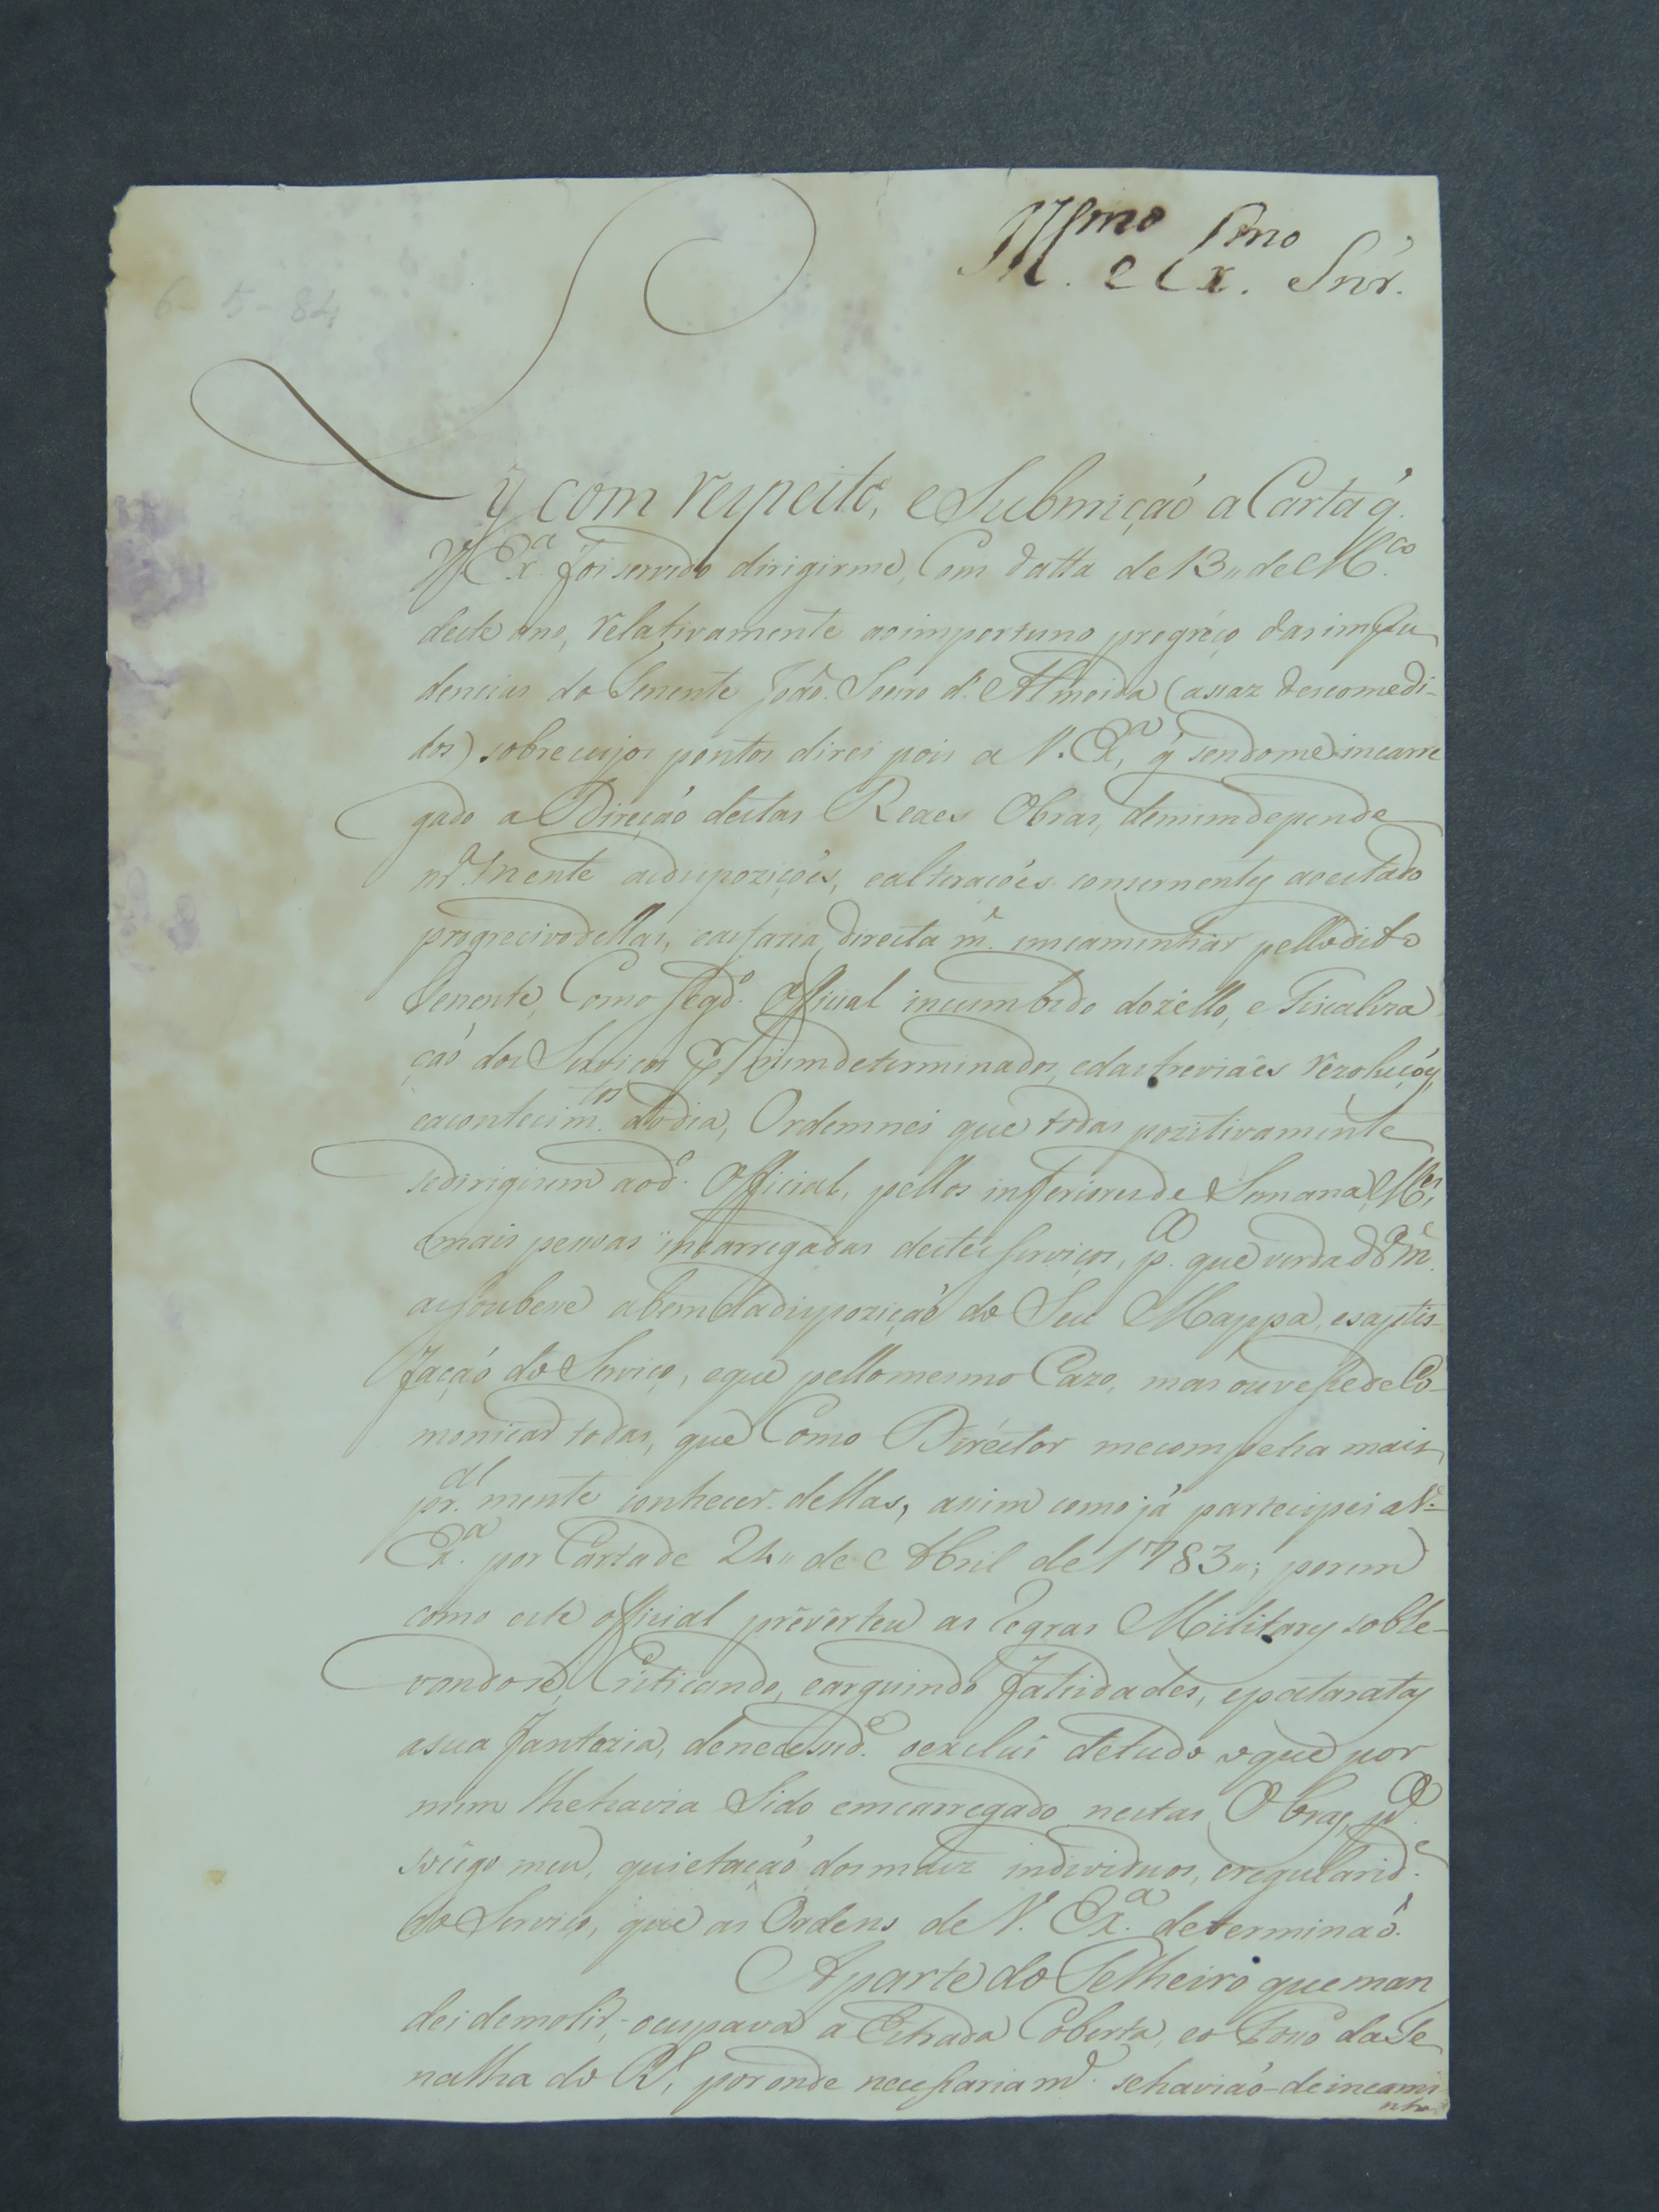 Ill.mo e Ex.mo Snr.
6-5-84
Ly com respeito, e Submiçaõ a Carta q̃.
V. Ex.a foi servido dirigirme, Com datta de 13,, de M.ço
deste ano, relativamente ao importuno progréço das impru
dencias do Tenente Joaõ. Soeiro d'. Almeida (assaz descomedi-
dos) sobre cujos pontos direi pois a V. Ex.a, q̃ sendome incarre
gado a Direçaõ destas Reaes Obras, de mim depende
mente as dispoziçoés, e alteraçoés consernentes ao estado
progrecivo dellas, e as fazia directa m.e incaminhar pello dito
Tenente, Como Segd.o Official incumbido do zello, e Fiscaliza
çaõ dos Serviços p.r mim determinados, e das treviaés rezoluçoẽs,
e acontecim.tos do dia, Ordemnei que todas pozitivamente
se dirigisem ao d.o Official, pellos inferiores de Semana, M.es,
e mais pessoas incarregadas destes serviços, p.a que verdad.ra m.e
as soubese a bem da dispoziçaõ do Seu Mappa, e saptis-
façaõ do Serviço, e que pello mesmo Cazo, mas ouvesse de Co-
monicar todas, que Como Diréctor me competia mais
pr.al mente conhecer dellas, asim como já partecipei a V.
Ex.a por Carta de 24,, de Abril de 1783,,; porem
como este official prevérteu as regras Militares soble-
vandose, Criticando, e arguindo falcidades, e pataratas
a sua fantazia, de necesid.e o exclui de tudo o que por
mim lhe havia Sido emcarregado nestas Obras, p.a
socêgo meu, quietaçaõ dos maiz individuos, e regularid.e
do Serviço, que as Ordens de V. Ex.a determinaõ.
A parte do Telheiro que man
dei demolir, ocupava a Estrada Coberta, e o Foço da Te
nalha do R.l, por onde necessariam.e se haviaõ de incami
nhar